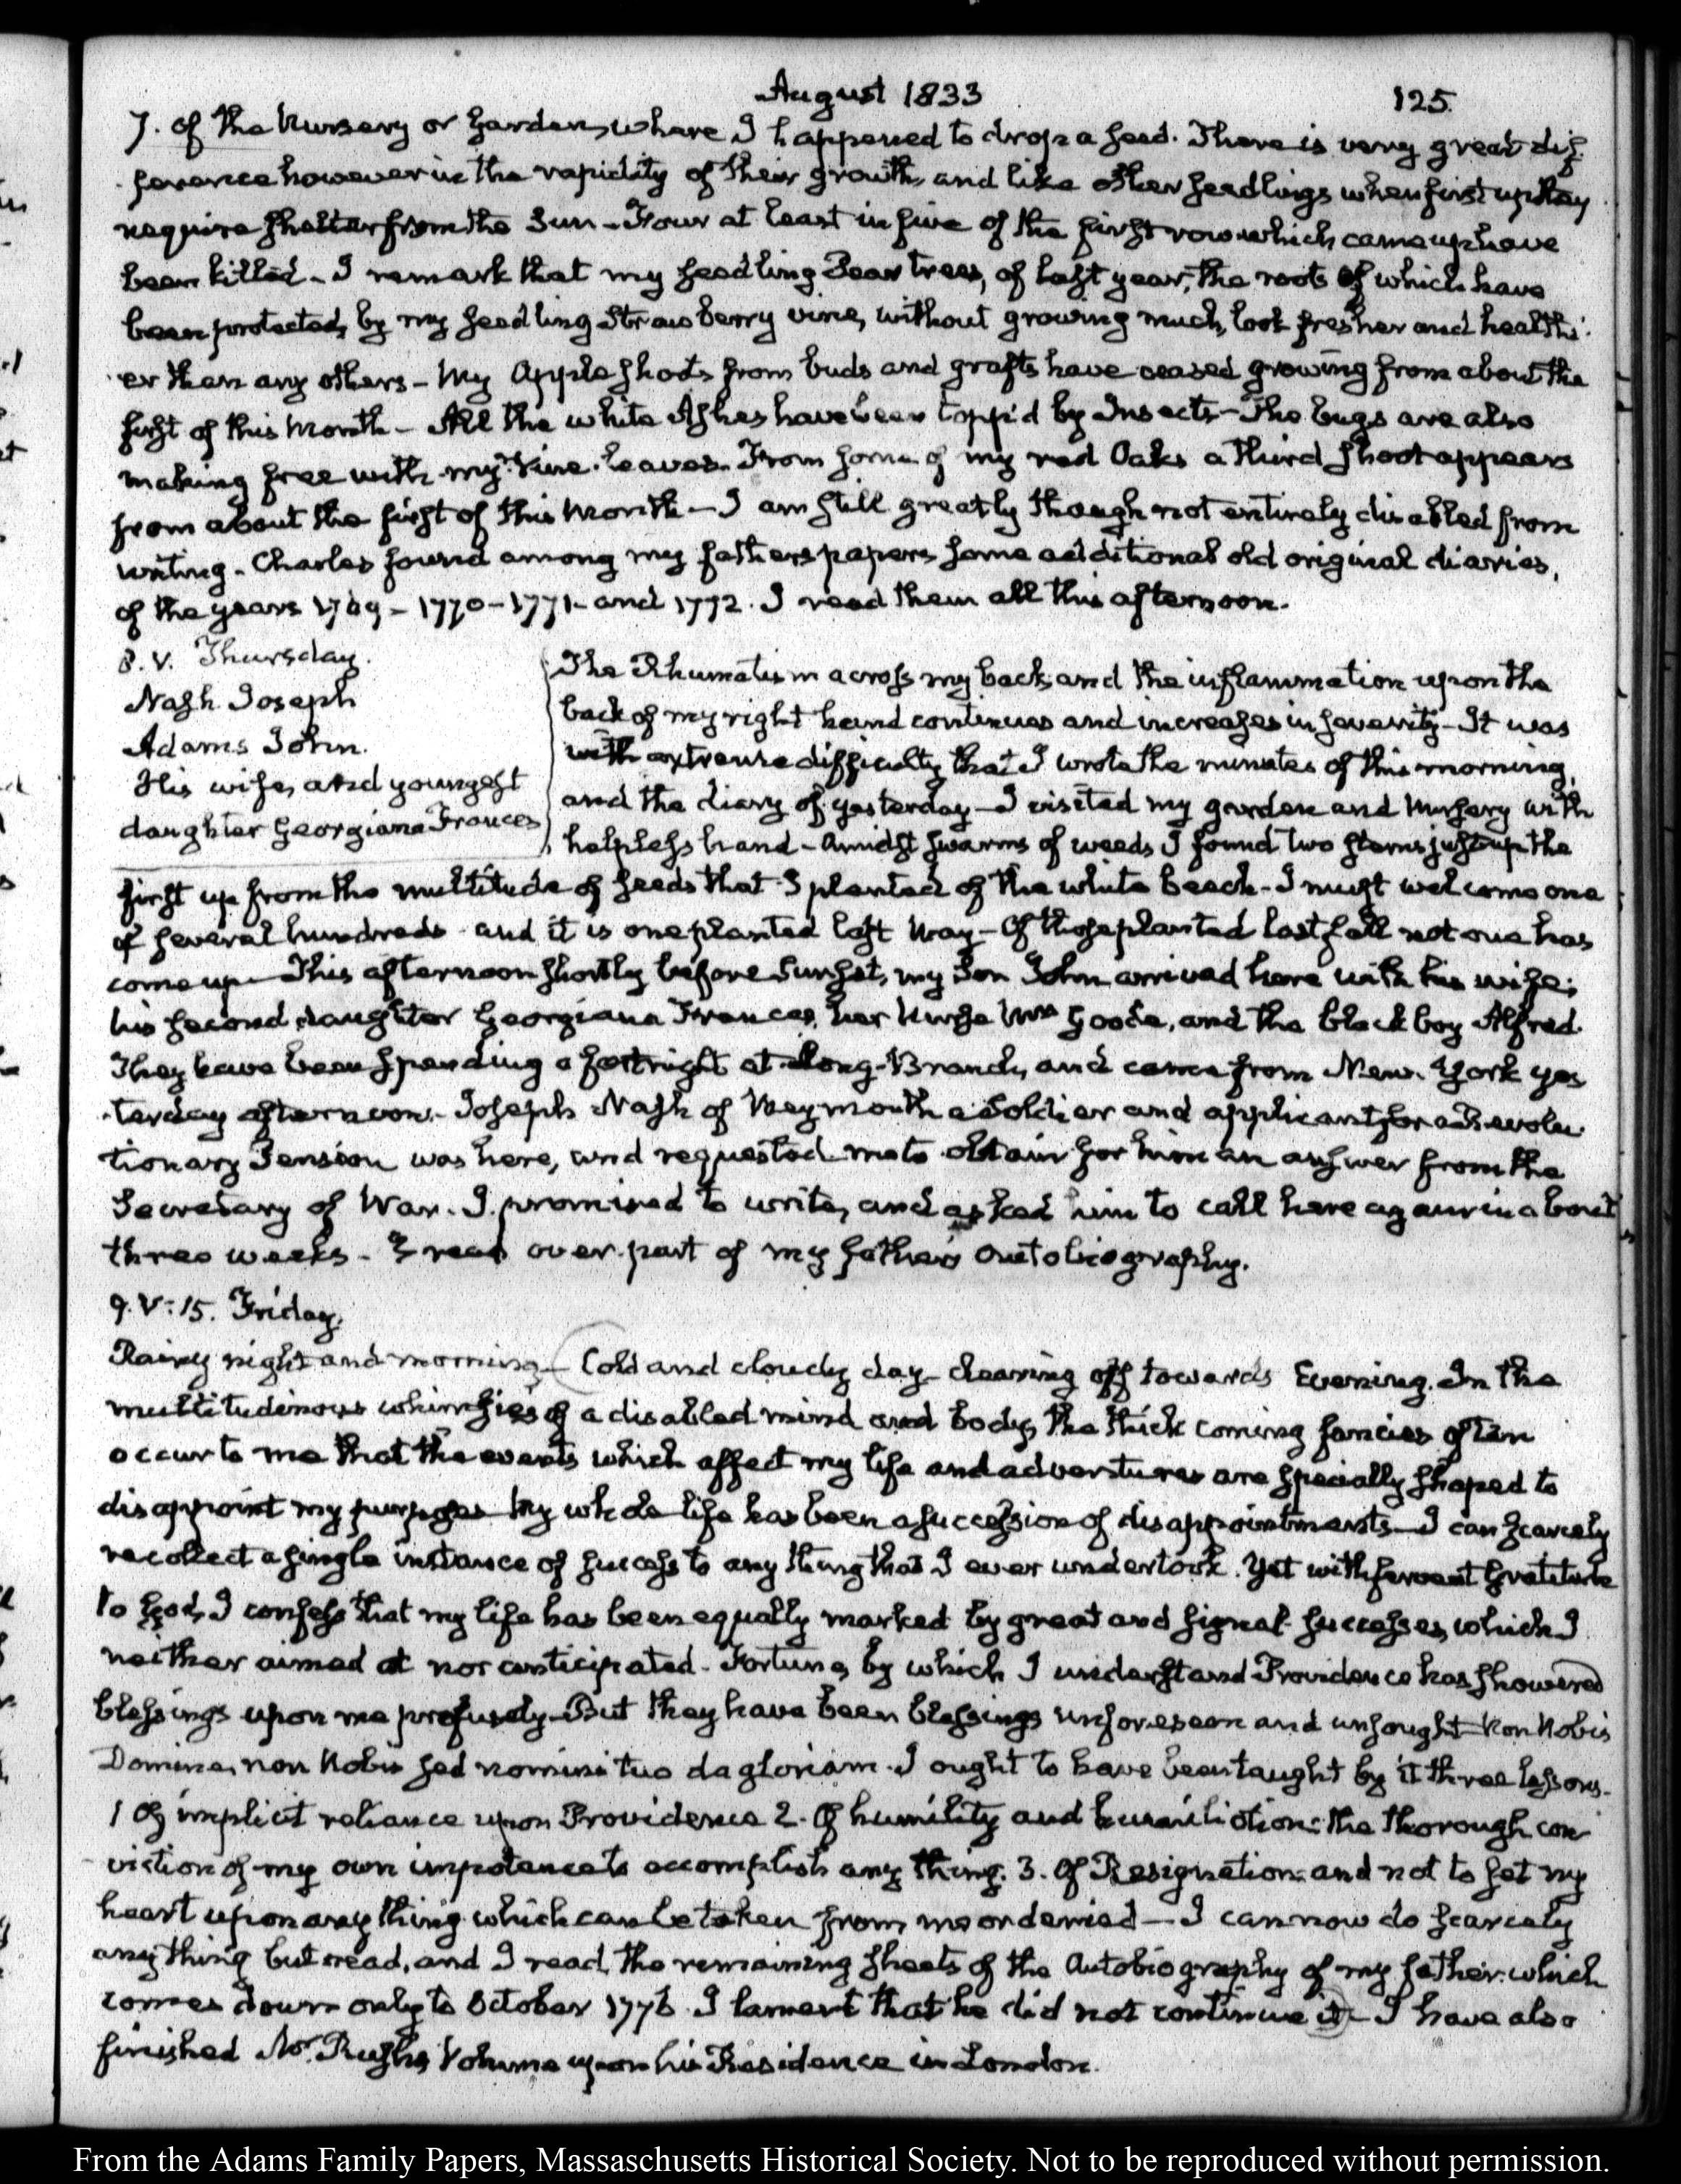 August 1833
125.
7. of the Nursery or Garden, where I happened to drop a seed. There is very great dif-
ference however in the rapidity of their growth, and like other seedlings when first up they
require shelter from the Sun – Four at least in five of the first row which came up have
been killed – I remark that my seedling Pear trees, of last year, the roots of which have
been protected, by my seedling Strawberry vine, without growing much, look fresher and healthi-
er than any others – My Apple shoots from buds and grafts have ceased growing from about the
first of this Month – All the white Ashes have been topp'd by Insects – The bugs are also
making free with my Vine-leaves. From some of my red Oaks a third shoot appears
from about the first of this Month – I am still greatly though not entirely disabled from
writing. Charles found among my fathers papers some additional old original diaries,
of the years 1769 – 1770 – 1771 – and 1772. I read them all this afternoon.
8. V. Thursday.
Nash Joseph
Adams John.
His wife, and youngest
daughter Georgiana Frances
The Rhumatism across my back, and the inflammation upon the
back of my right hand continues and increases in severity – It was
with extreme difficulty that I wrote the minutes of this morning,
and the diary of yesterday – I visited my garden and Nursery with
helpless hand – Amidst swarms of weeds I found two stems just up the
first up from the multitude of seeds that I planted of the white beach – I must welcome one
of several hundreds – and it is one planted last May – Of those planted last fall not one has
come up – This afternoon shortly before Sunset, my Son John arrived here with his wife;
his second daughter Georgiana Frances, her Nurse Mrs Goode, and the black boy Alfred.
They have been spending a fortnight at Long-Branch, and came from New-York yes-
terday afternoon. Joseph Nash of Weymouth a Soldier and applicant for a Revolu-
tionary Pension was here, and requested me to obtain for him an answer from the
Secretary of War. I promised to write, and asked him to call here again in about
three weeks – I read over part of my father's Autobiography.
9. V:15. Friday.
Rainy night and morning – Cold and cloudy day – clearing off towards Evening. In the
multitudinous whimsies of a disabled mind and body, the thick coming fancies often
occur to me that the events which affect my life and adventures are specially shaped to
disappoint my purposes – My whole life has been a succession of disappointments – I can scarcely
recollect a single instance of success to any thing that I ever undertook. Yet with fervent Gratitude
to God, I confess that my life has been equally marked by great and signal successes, which I
neither aimed at nor anticipated – Fortune, by which I understand Providence has showered
blessings upon me profusely – But they have been blessings unforeseen and unsought – Non Nobis
Domine, non Nobis sed nomini tuo da gloriam. I ought to have been taught by it three lessons.
1 Of implicit reliance upon Providence 2. Of humility and humiliation: the thorough con-
viction of my own impotence to accomplish any thing. 3. Of Resignation: and not to set my
heart upon any thing which can be taken from me or denied – I can now do scarcely
any thing but read, and I read the remaining sheets of the Autobiography of my father: which
comes down only to October 1776. I lament that he did not continue it – I have also
finished Mr. Rush's Volume upon his Residence in London.
From the Adams Family Papers, Massachusetts Historical Society. Not to be reproduced without permission.